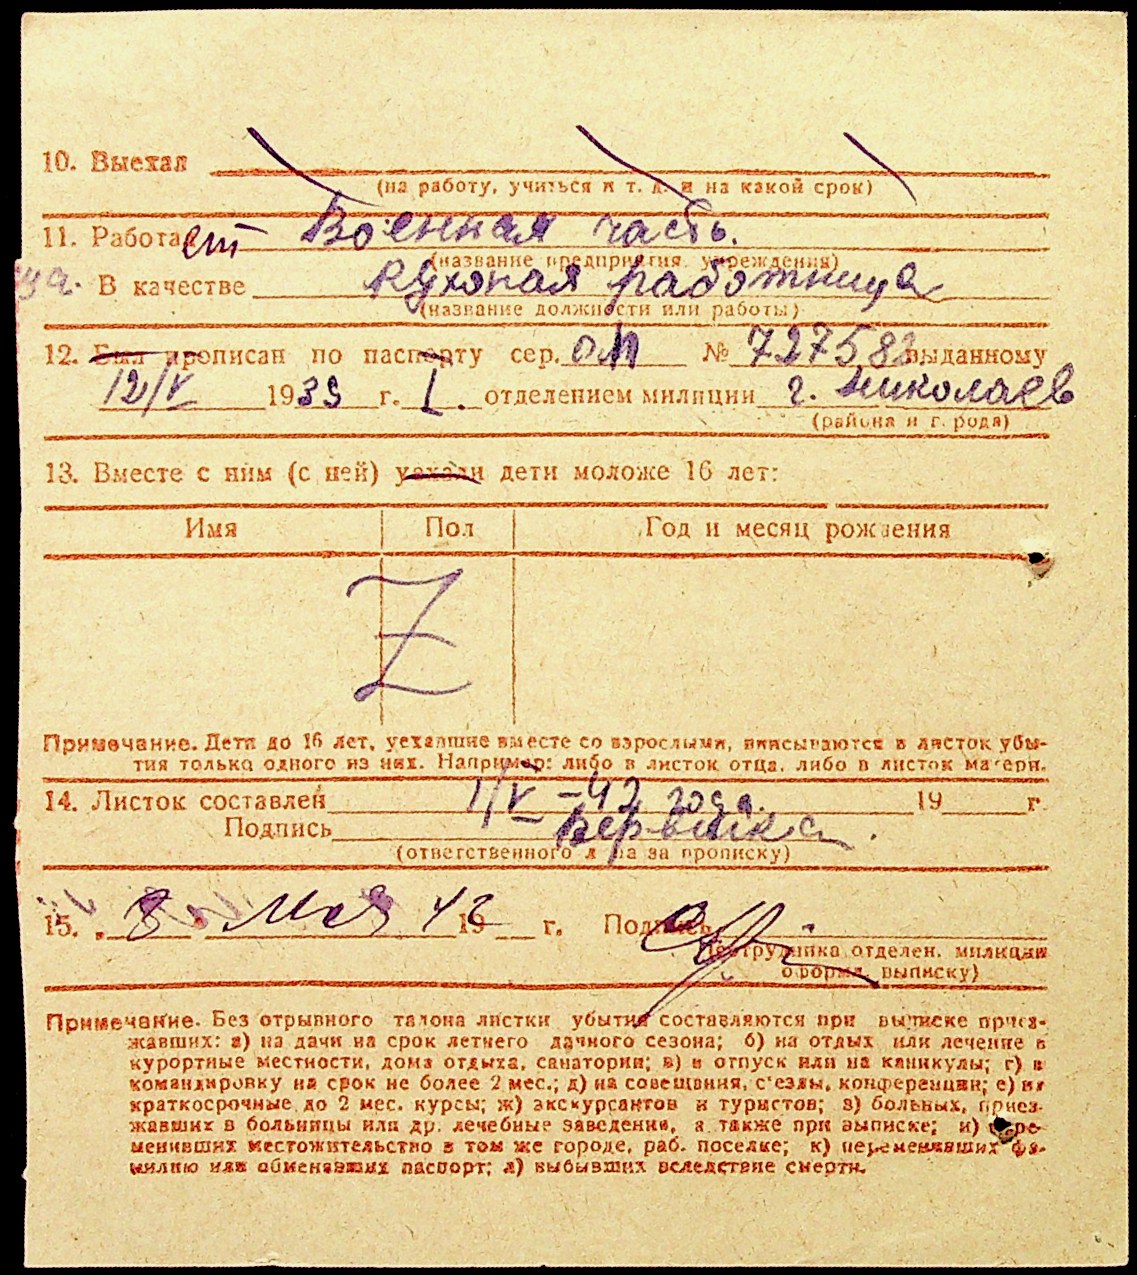 10. Выехал
(на работу, учиться и т. д. и на какой срок)
11. Работает Военная часть.
(название предприятия, учреждения)
В качестве кухоная работница
(название должности или работы)
12. Был прописан по паспорту сер. ОМ № 727582 выданному
12/V 1939 г. I. отделением милиции г. Николаев
(района и города)
13. Вместе с ним (с ней) уехали дети моложе 16 лет:
Имя Пол Год и месяц рождения
Z
Примечание. Дети до 16 лет, уехавшие вместе со взрослыми, вписываются в листок убы-
тия только одного из них. Например: либо в листок отца, либо в листок матери.
14. Листок составлен 1/V – 42 года. 19 г.
Подпись
(ответственного лица за прописку)
15. „8" Мая 42 19 г. Подпись
(сотрудника отделен. милиции
оформл. выписку)
Примечание. Без отрывного талона листки убытия составляются при выписке приез-
жавших: а) на дачи на срок летнего дачного сезона; б) на отдых или лечение в
курортные местности, дома отдыха, санатории; в) в отпуск или на каникулы; г) в
командировку на срок не более 2 мес.; д) на совещания, с'езды, конференции; е) на
краткосрочные до 2 мес. курсы; ж) экскурсантов и туристов; з) больных, приез-
жавших в больницы или др. лечебные заведения, а также при выписке; и) пере-
менивших местожительство в том же городе, раб. поселке; к) переменивших фа-
милию или обменявших паспорт; л) выбывших вследствие смерти.